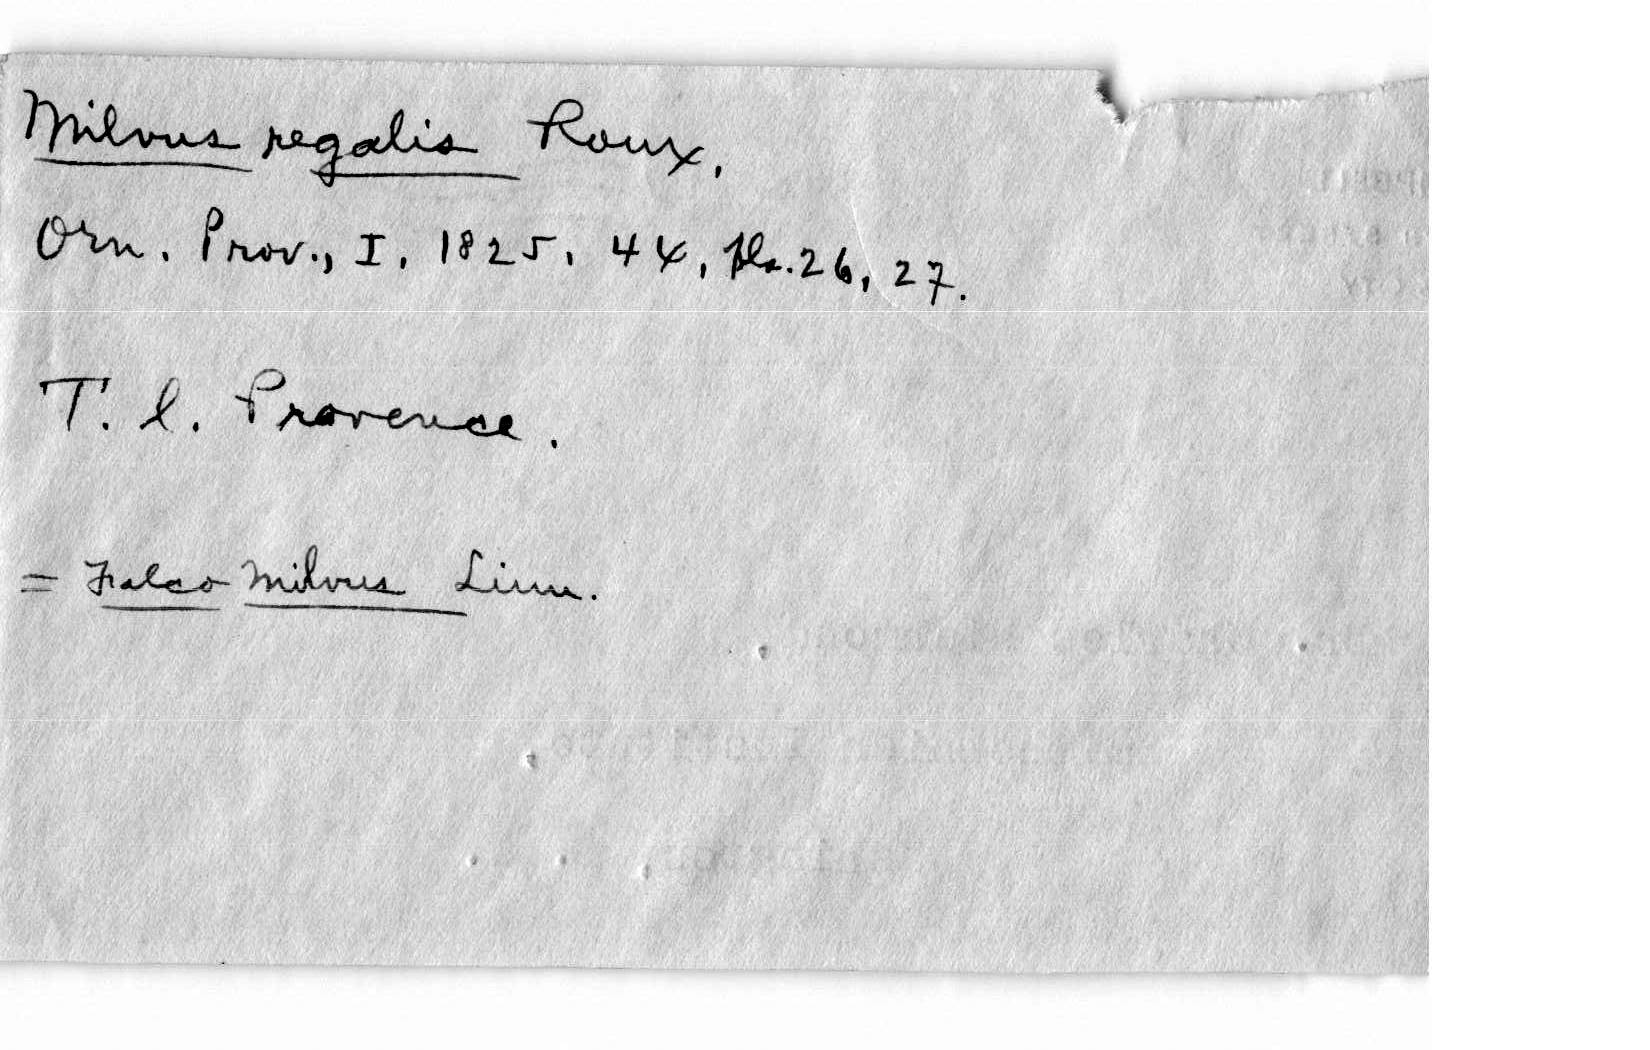 Milvus regalis Roux.
Orn. Prov., I, 1825, 44, pls. 26, 27.
T. l. Provence.
= Falco milvus Linn.